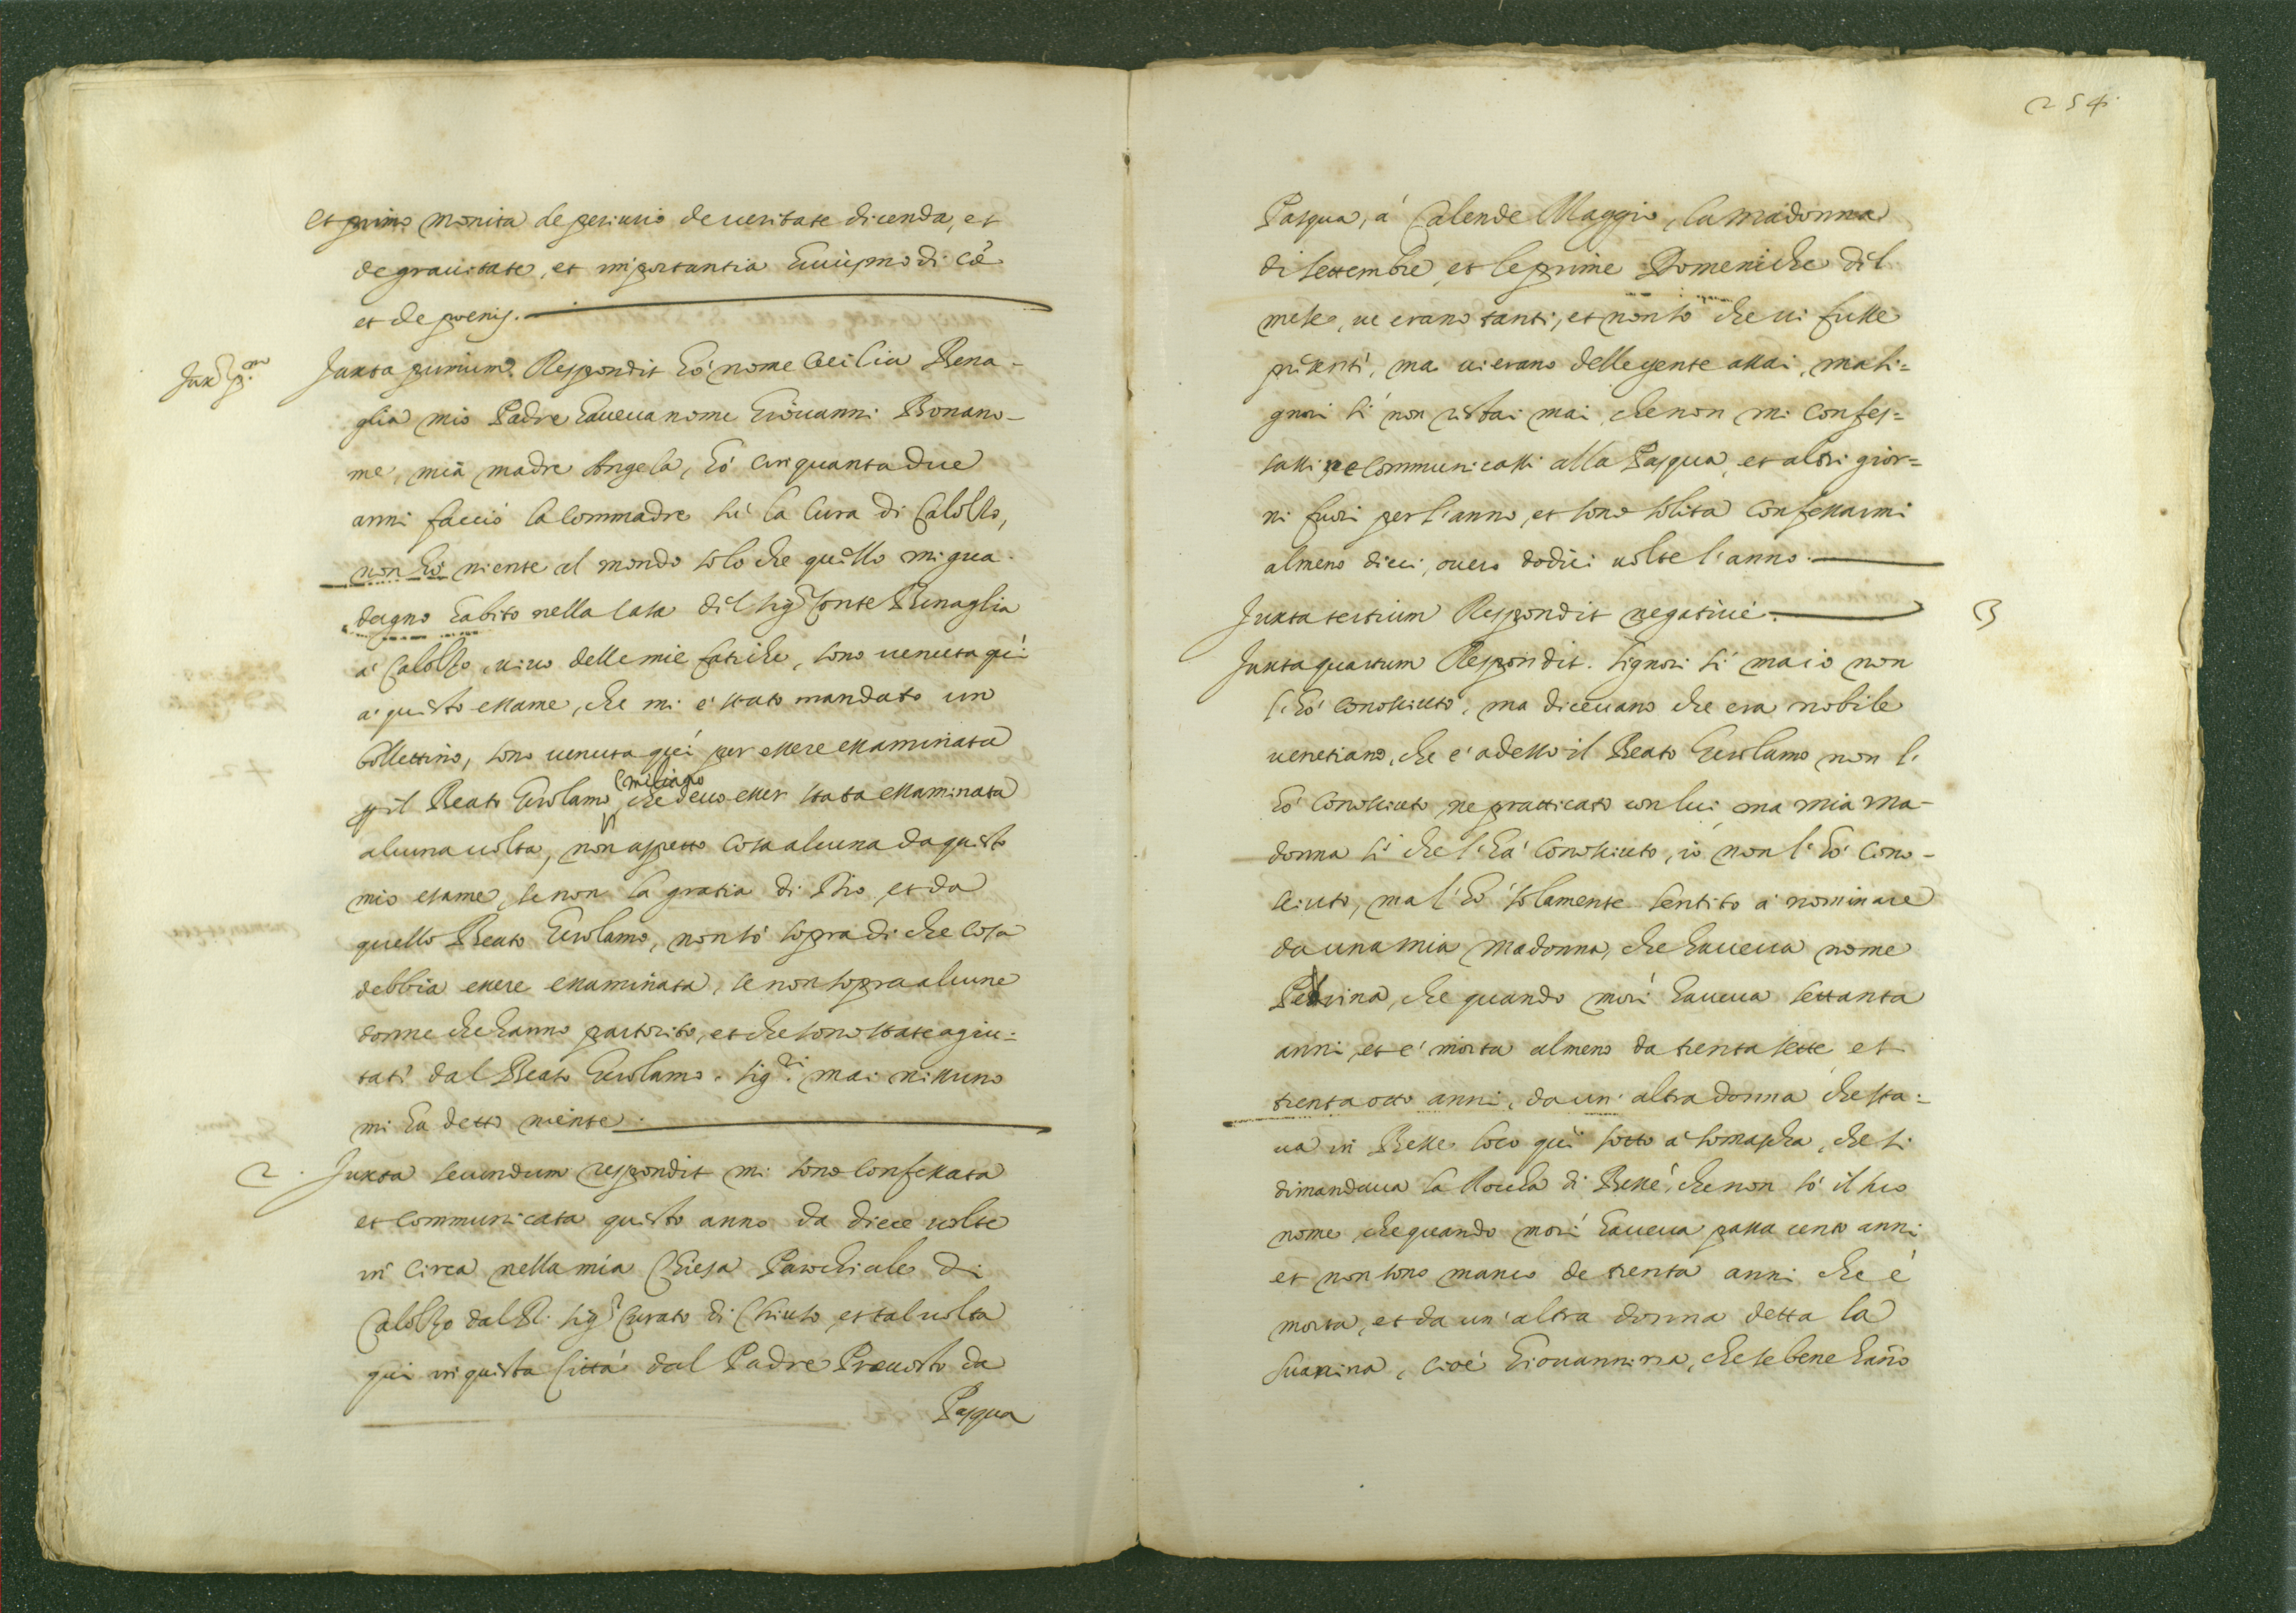 et primo monita de periurio de veritate dicenda, et
de gravitate, et importantia huiusmodi cã
et de poenis.
Juxª p.um
Juxta primum Respondit hò nome Cecilia Bena-
glia mio Padre haueua nome Giovanni Bonano-
me, mia madre Angela, hò cinquanta due
anni faccio la Commadre sù la Cura di Calolzo,
non hò niente al mondo solo che quello mi gua-
dagno habito nella Casa dil sig.r Conte Benaglia
à Calolzo, vivo delle mie fatiche, sono venuta qui
a questo essame, che mi è stato mandato un
bollettino, sono venuta quì per essere essaminata
p il Beato Girolamo, che devo esser stata essaminata
alcuna volta, non aspetto cosa alcuna da questo
mio esame, se non la gratia di Dio, et da
quello Beato Girolamo, non sò sopra di che cosa
debbia essere essaminata, se non sopra alcune
donne che hanno partorito, et che sono state agiu-
tati dal Beato Girolamo. Sig.ri mai nissuno
mi ha detto niente.
2. Juxta secundum respondit mi sono Confessata
et Communicata questo anno da diece volte
in Circa nella mia Chiesa Parochiale di
Calolzo dal R. sig.r Curato di Chiuso, et tal volta
qui in questa Città dal Padre Prevosto da
Pasqua
254
Pasqua, à Calende Maggio, la madonna
di settembre, et le prime Domeniche dil
mese, ve erano tanti, et non sò che vi fusse
presenti, ma vi erano delle gente assai, ma si-
gnori sì non restai mai, che non mi confes-
sassi ne Communicassi alla Pasqua, et altri gior-
ni fuori per l'anno, et sono solita Confessarmi
almeno dieci, overo dodici volte l'anno.
Juxta tertium Respondit negative.
3
Juxta quartum Respondit. Signori sì ma io non
l'hò Conossiuto, ma dicevano che era nobile
venetiano, che è adesso il Beato Girolamo non l'
hò Conossiuto, ne pratticato con lui, ma mia ma-
donna sì che l'hà Conossiuto, io non l'hò Cono-
sciuto, ma l'hò solamente sentito à nominare
da una mia madonna, che haueua nome
Pedrina, che quando morì haueua settanta
anni, et è morta almeno da trenta sette et
trenta otto anni, da un'altra donna che sta-
ua in Besse loco quì sotto à somasca, che si
dimandaua la Roccha di Bessé, che non sò il suo
nome, che quando morì haueua passa cento anni
et non sono manco de trenta anni che è
morta, et da un'altra donna detta la
Suanina, cioè Giouannina, che se bene hanõ